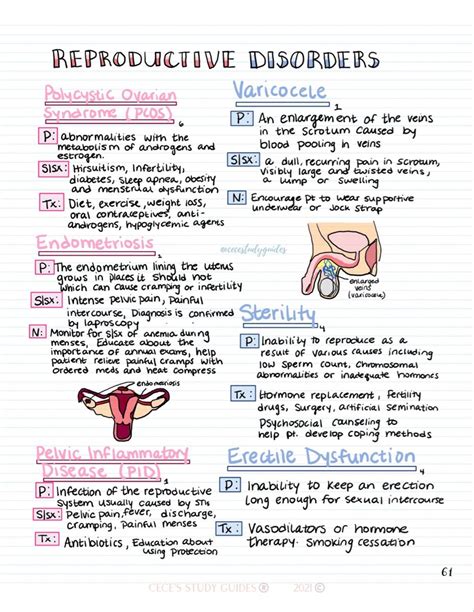 REPRODUCTIVE DISORDERS
Polycystic Ovarian
Syndrome (PCOS)
6
P: abnormalities with the
metabolism of androgens and
estrogen.
S|sx: Hirsuitism, Infertility,
diabetes, Sleep apnea, obesity
and menstrual dysfunction
Tx: Diet, exercise, weight loss,
oral contraceptives, anti-
androgens, hypoglycemic agents
Endometriosis
1
P: The endometrium lining the uterus
grows in places it should not
which can cause cramping or infertility
S|sx: Intense pelvic pain, Painful
intercourse, Diagnosis is confirmed
by laproscopy
N: Monitor for s|sx of anemia during
menses, Educate about the
importance of annual exams, help
patient relieve painful cramps with
ordered meds and heat compress
endometriosis
Pelvic Inflammatory
Disease (PID)
1
P: Infection of the reproductive
system usually caused by STIs
S|sx: Pelvic pain, fever, discharge,
cramping, painful menses
Tx: Antibiotics, Education about
using Protection
Varicocele
1
P: An enlargement of the veins
in the scrotum caused by
blood pooling in veins
S|sx: a dull, recurring pain in scrotum,
visibly large and twisted veins,
a lump or swelling
N: Encourage pt to wear supportive
underwear or Jock strap
@cecesstudyguides
enlarged
veins
(varicocele)
Sterility
4
P: Inability to reproduce as a
result of various causes including
low sperm count, chromosomal
abnormalities or inadequate hormones
Tx: Hormone replacement, fertility
drugs, Surgery, artificial semination
Psychosocial counseling to
help pt. develop coping methods
Erectile Dysfunction
4
P: Inability to keep an erection
long enough for sexual intercourse
Tx: Vasodilators or hormone
therapy. Smoking cessation
61
CECE'S STUDY GUIDES ® 2021 ©